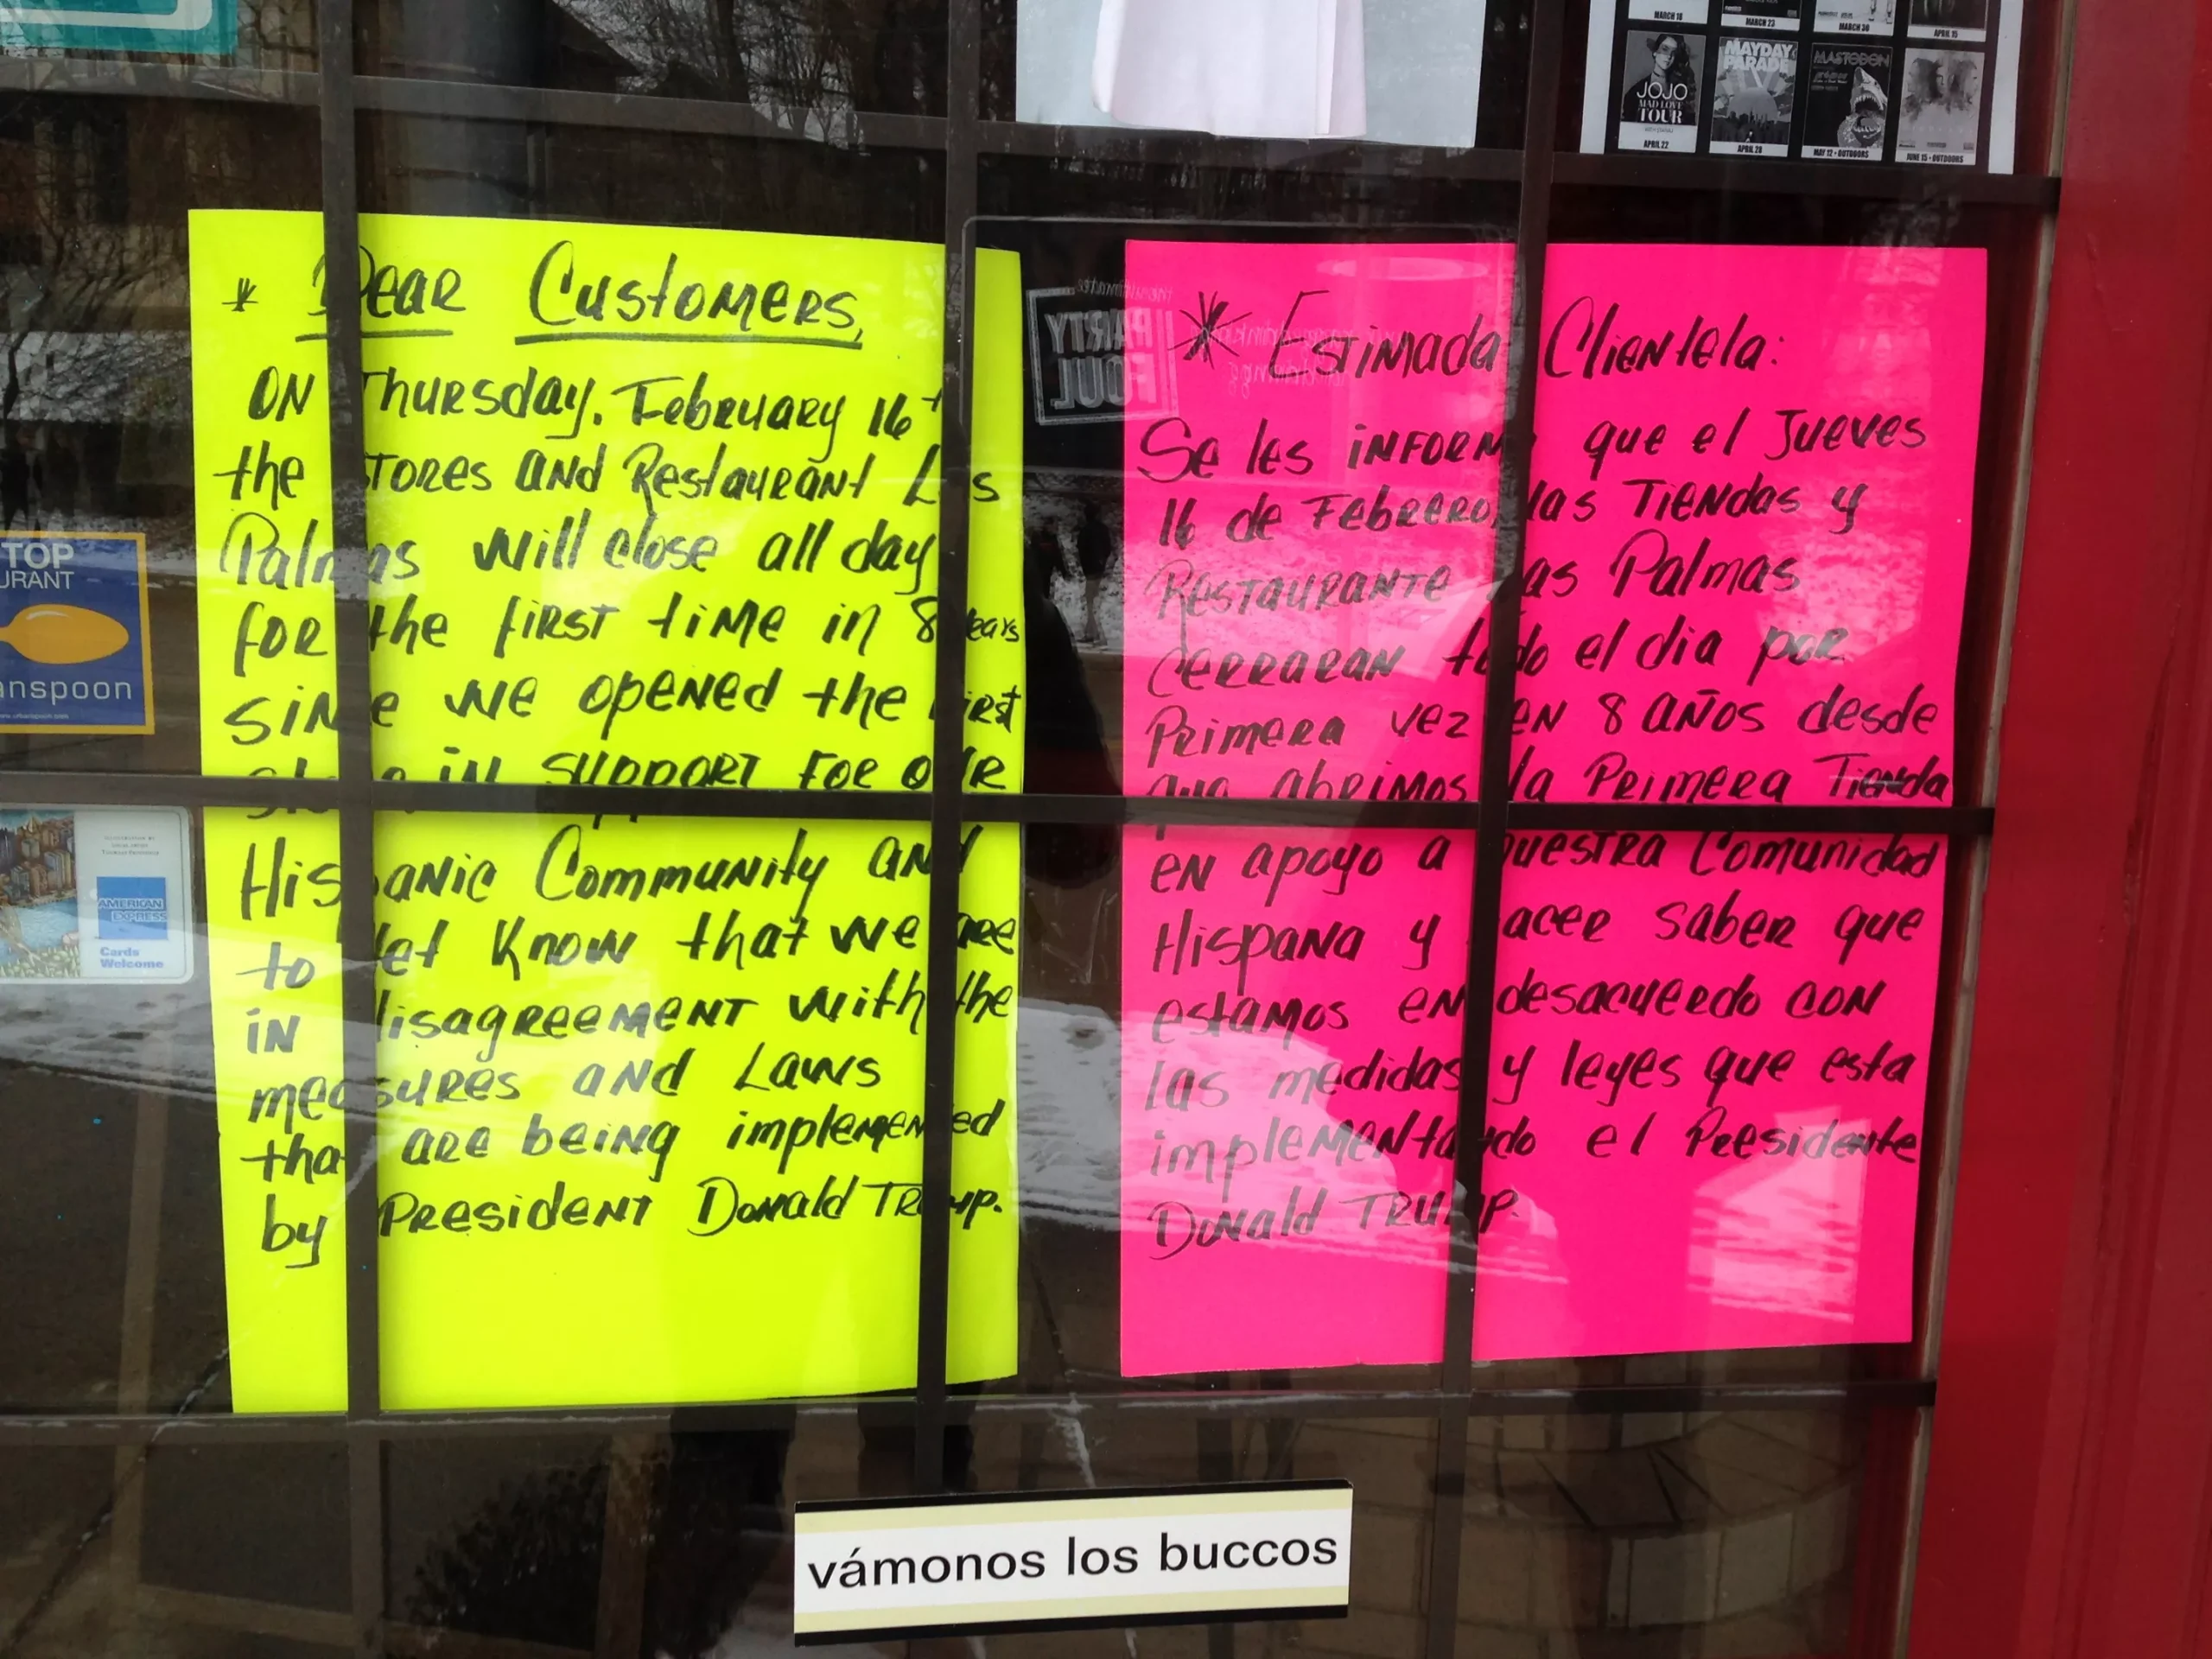 MARCH 18
MARCH 23
MARCH 30
APRIL 15
JOJO
MAD LOVE
TOUR
APRIL 22
MAYDAY
PARADE
APRIL 28
MASTODON
MAY 12 • OUTDOORS
JUNE 15 • OUTDOORS
* Dear Customers,
ON Thursday. February 16
the STORES and Restaurant Las
Palmas will close all day
for the first time in 8 years
since we opened the first
store in support for our
Hispanic Community and
to let know that we are
in disagreement with the
measures and Laws
that are being implemented
by President Donald Trump.
PARTY
FOUL
* Estimada Clientela:
Se les informa que el Jueves
16 de Febrero, las Tiendas y
Restaurante Las Palmas
cerraran todo el dia por
Primera vez en 8 años desde
que abrimos la Primera Tienda
en apoyo a nuestra Comunidad
Hispana y hacer saber que
estamos en desacuerdo con
las medidas y leyes que esta
implementando el Presidente
Donald Trump.
TOP
URANT
anspoon
AMERICAN
EXPRESS
Cards
Welcome
vámonos los buccos